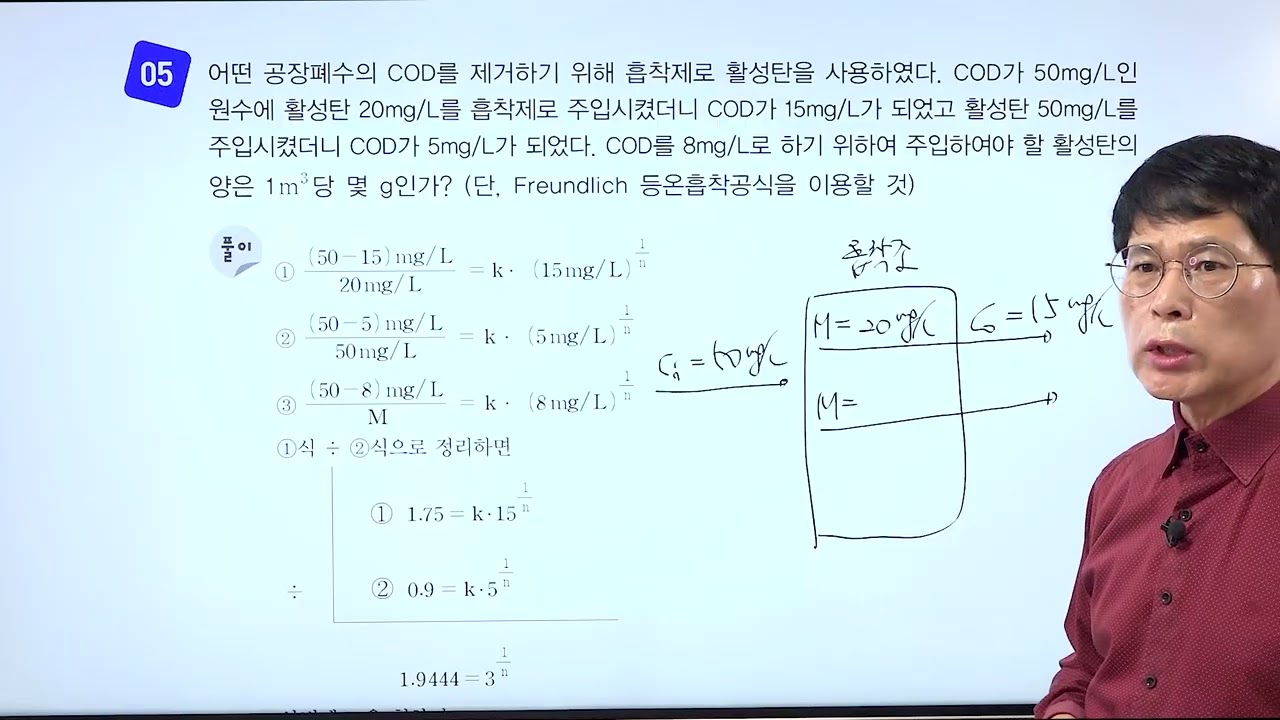 05
어떤 공장폐수의 COD를 제거하기 위해 흡착제로 활성탄을 사용하였다. COD가 50mg/L인
원수에 활성탄 20mg/L를 흡착제로 주입시켰더니 COD가 15mg/L가 되었고 활성탄 50mg/L를
주입시켰더니 COD가 5mg/L가 되었다. COD를 8mg/L로 하기 위하여 주입하여야 할 활성탄의
양은 1m³당 몇 g인가? (단, Freundlich 등온흡착공식을 이용할 것)
풀이
① (50-15)mg/L / 20mg/L = k · (15mg/L)^(1/n)
② (50-5)mg/L / 50mg/L = k · (5mg/L)^(1/n)
③ (50-8)mg/L / M = k · (8mg/L)^(1/n)
①식 ÷ ②식으로 정리하면
① 1.75 = k·15^(1/n)
÷ ② 0.9 = k·5^(1/n)
1.9444 = 3^(1/n)
흡착조
M = 20mg/L
Co = 15mg/L
Ci = 50mg/L
M =